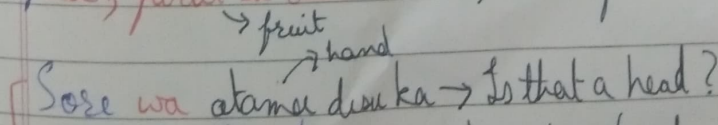 → fruit
→ hand
Sore wa atama desu ka → Is that a head?